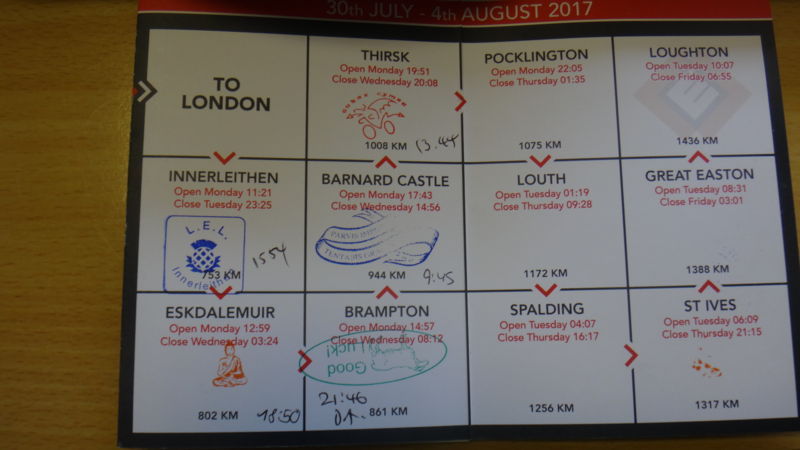 30th JULY - 4th AUGUST 2017
TO
LONDON
THIRSK
Open Monday 19:51
Close Wednesday 20:08
1008 KM
13.44
POCKLINGTON
Open Monday 22:05
Close Thursday 01:35
1075 KM
LOUGHTON
Open Tuesday 10:07
Close Friday 06:55
E
1436 KM
INNERLEITHEN
Open Monday 11:21
Close Tuesday 23:25
L.E.L.
Innerleithen
753 KM
1554
BARNARD CASTLE
Open Monday 17:43
Close Wednesday 14:56
PARVIS
944 KM
9:45
LOUTH
Open Tuesday 01:19
Close Thursday 09:28
1172 KM
GREAT EASTON
Open Tuesday 08:31
Close Friday 03:01
1388 KM
ESKDALEMUIR
Open Monday 12:59
Close Wednesday 03:24
802 KM
18:50
BRAMPTON
Open Monday 14:57
Close Wednesday 08:12
Good
Luck!
21:46
861 KM
SPALDING
Open Tuesday 04:07
Close Thursday 16:17
1256 KM
ST IVES
Open Tuesday 06:09
Close Thursday 21:15
1317 KM